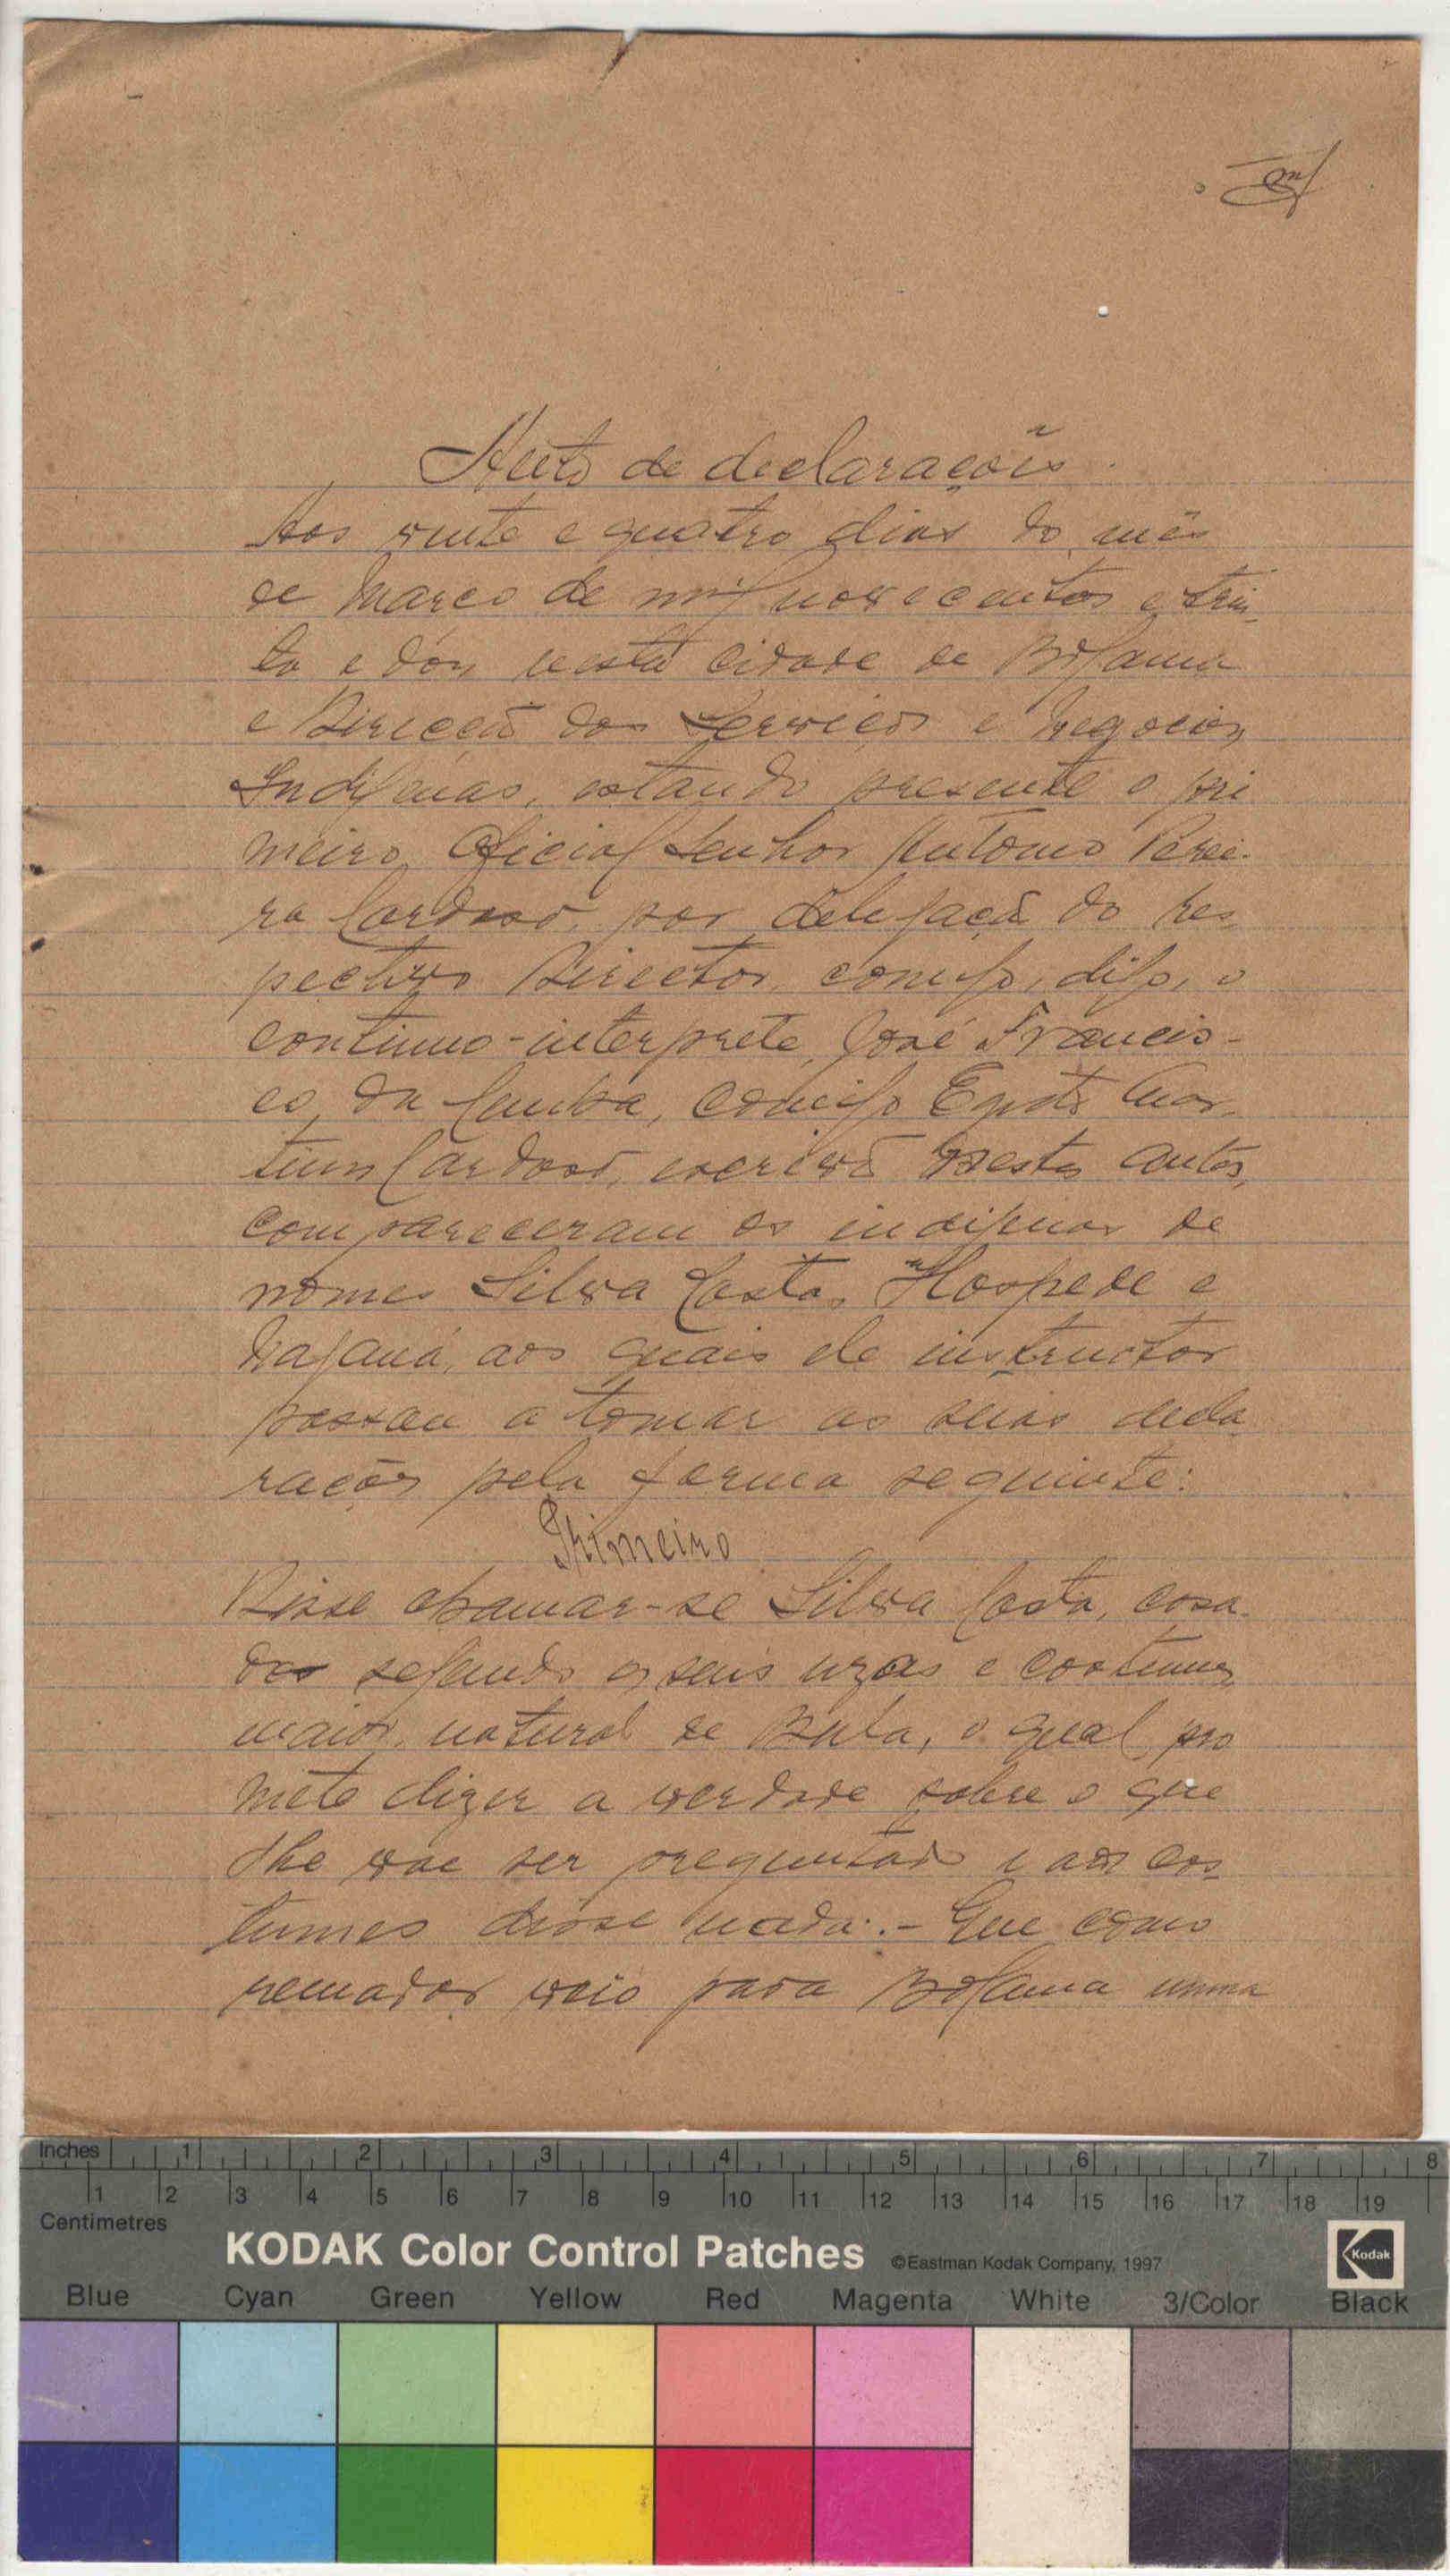 Auto de declaraçõis.
Aos vinte e quatro dias do mês
de Março de mil novecentos e trin-
ta e dois nesta cidade de Bolama
e Direcção dos Serviços e Negocios
Indigenas, estando presente o pri
meiro Oficial Senhor Antonio Perei-
ra Cardoso, por delegação do res-
pectivo Director, comigo, digo, o
continuo-interprete, José Francis-
co da Cunha, comigo Martins
Cardoso, escrivã nestes autos,
compareceram os indigenas de
nomes Silva Costa, Hospede e
aos quais ele instructor
passou a tomar as suas decla
rações pela forma seguinte:
Primeiro
Disse chamar-se Silva Costa, casa-
do segundo os seus uzos e costumes
maior, natural de Bula, o qual pro
mete dizer a verdade sobre o que
lhe vae ser preguntado e aos cos-
tumes disse nada:.- Que como
remador veio para Bolama numa
Inches 1 2 3 4 5 6 7 8
1 2 3 4 5 6 7 8 9 10 11 12 13 14 15 16 17 18 19
Centimetres
KODAK Color Control Patches ©Eastman Kodak Company, 1997 Kodak
Blue Cyan Green Yellow Red Magenta White 3/Color Black